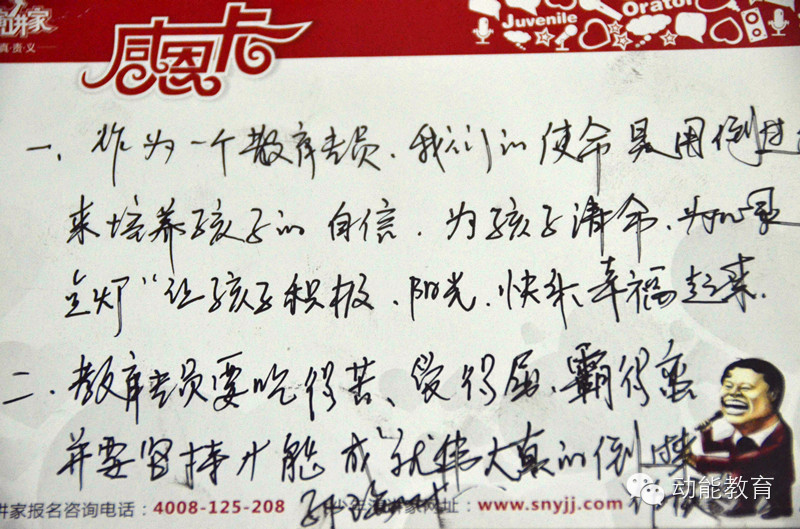 讲家
真·责·义
感恩卡
Juvenile
Orator
一、作为一个教育专员、我们的使命是用倒过
来培养孩子的自信、为孩子请命、为心灵
点灯“让孩子积极、阳光、快乐、幸福起来.
二、教育专员要吃得苦、受得屈、霸得蛮
并要坚持才能成就伟大真的倒过来
讲家报名咨询电话：4008-125-208 演讲家网址：www.snyjj.com
动能教育